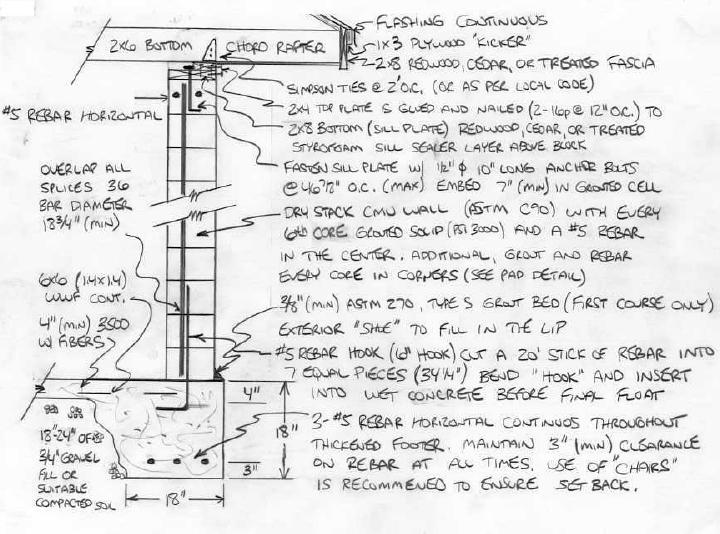 FLASHING CONTINUOUS
1x3 PLYWOOD "KICKER"
2-2x8 REDWOOD, CEDAR, OR TREATED FASCIA
2x6 BOTTOM CHORD RAFTER
SIMPSON TIES @ 2' O.C. (OR AS PER LOCAL CODE)
2x4 TOP PLATE IS GLUED AND NAILED (2-16p @ 12" O.C.) TO
2x8 BOTTOM (SILL PLATE) REDWOOD, CEDAR, OR TREATED
STYROFOAM SILL SEALER LAYER ABOVE BLOCK
#5 REBAR HORIZONTAL
FASTEN SILL PLATE W/ 1/2" φ 10" LONG ANCHOR BOLTS
O.C. (MAX) EMBED 7" (MIN) IN GROUTED CELL
OVERLAP ALL
SPLICES 36
BAR DIAMETER
18 3/4" (MIN)
DRY STACK CMU WALL (ASTM C90) WITH EVERY
6th CORE GROUTED SOLID (PSI 3000) AND A #5 REBAR
IN THE CENTER. ADDITIONAL, GROUT AND REBAR
EVERY CORE IN CORNERS (SEE PAD DETAIL)
6x6 (1.4x1.4)
WWF CONT.
4" (MIN) 3500
W/ FIBERS
3/8" (MIN) ASTM 270, TYPE S GROUT BED (FIRST COURSE ONLY)
EXTERIOR "SHOE" TO FILL IN THE LIP
#5 REBAR HOOK (6" HOOK) CUT A 20' STICK OF REBAR INTO
7 EQUAL PIECES (34 1/4") BEND "HOOK" AND INSERT
INTO WET CONCRETE BEFORE FINAL FLOAT
4"
18"
3"
18"
18"-24" OF
3/4" GRAVEL
FILL OR
SUITABLE
COMPACTED SOIL
3-#5 REBAR HORIZONTAL CONTINUOS THROUGHOUT
THICKENED FOOTER. MAINTAIN 3" (MIN) CLEARANCE
ON REBAR AT ALL TIMES. USE OF "CHAIRS"
IS RECOMMENED TO ENSURE SET BACK.